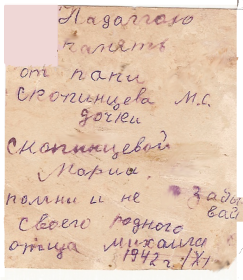 Падаггою
память
от папи
Скопинцева М.С.
дочки
Скопинцевой
Мария.
помни и не забы
вай
своего родного
отца михаила
1942 г. /XI